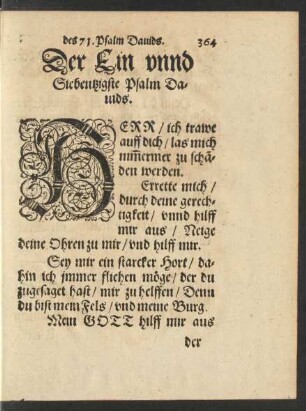 des 71. Psalm Dauids. 364
Der Ein vnnd
Siebentzigste Psalm Da-
uids.
HERR / ich trawe
auff dich / las mich
nimmermer zu schā-
den werden.
Errette mich /
durch deine gerech-
tigkeit / vnnd hilff
mir aus / Neige
deine Ohren zu mir / vnd hilff mir.
Sey mir ein starcker Hort / da-
hin ich jmmer fliehen möge / der du
zugesaget hast / mir zu helffen / Denn
du bist mein Fels / vnd meine Burg.
Mein GOTT hilff mir aus
der